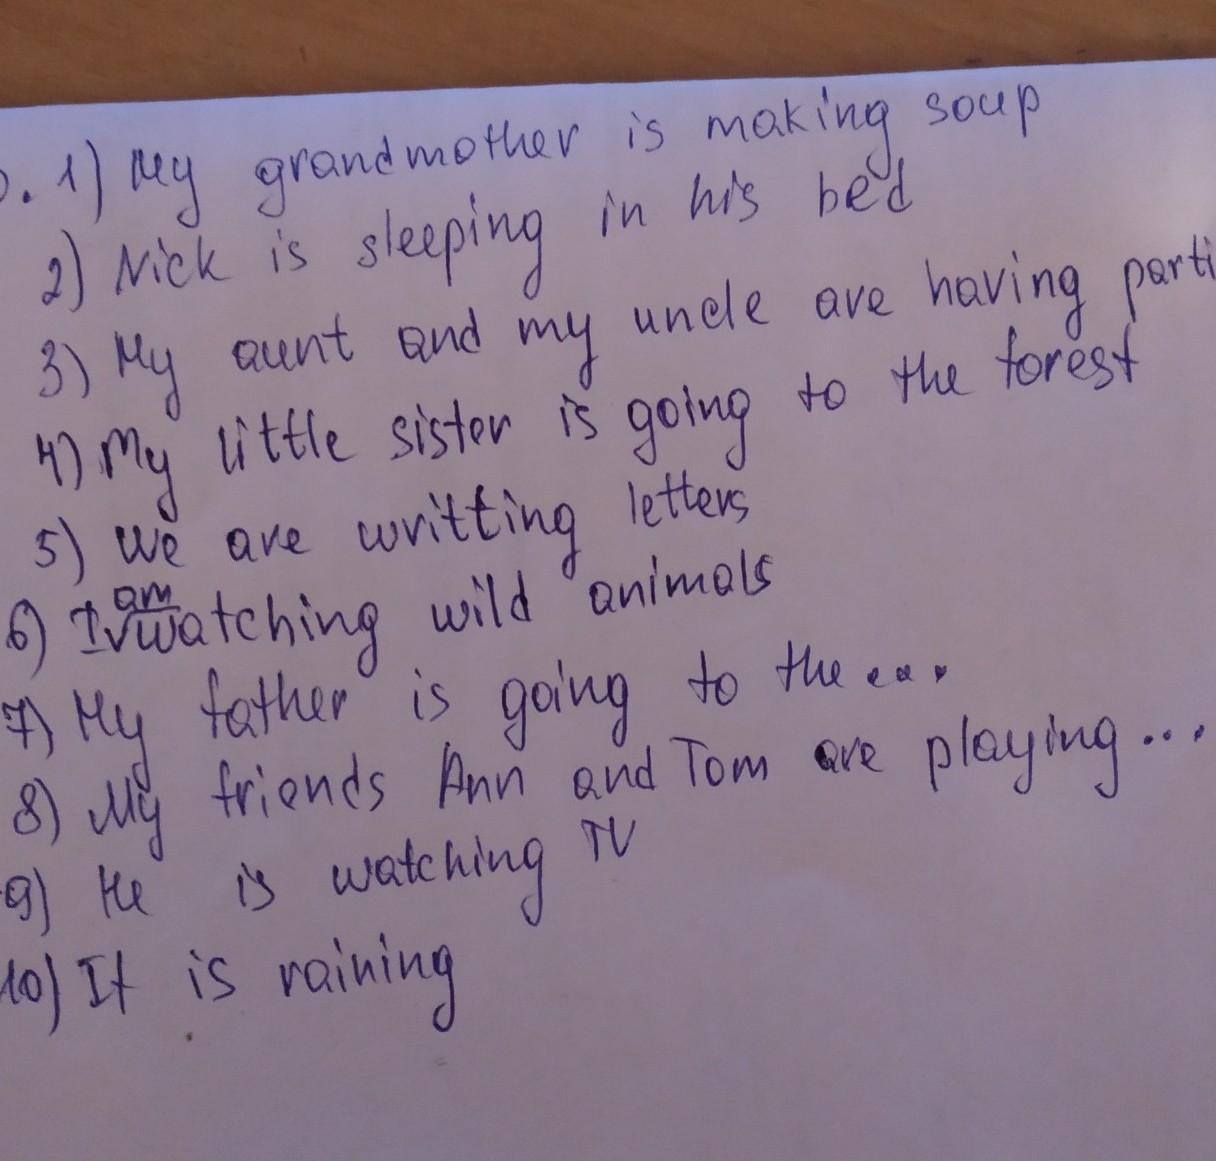 . 1) My grandmother is making soup
2) Nick is sleeping in his bed
3) My aunt and my uncle are having parti
4) My little sister is going to the forest
5) We are writting letters
6) I am watching wild animals
7) My father is going to the ...
8) My friends Ann and Tom are playing ...
9) He is watching TV
10) It is raining